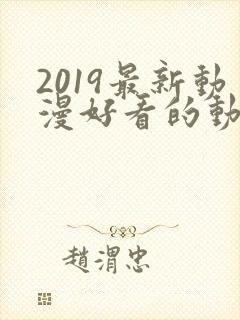 2019最新動
漫好看的動
趙渭忠